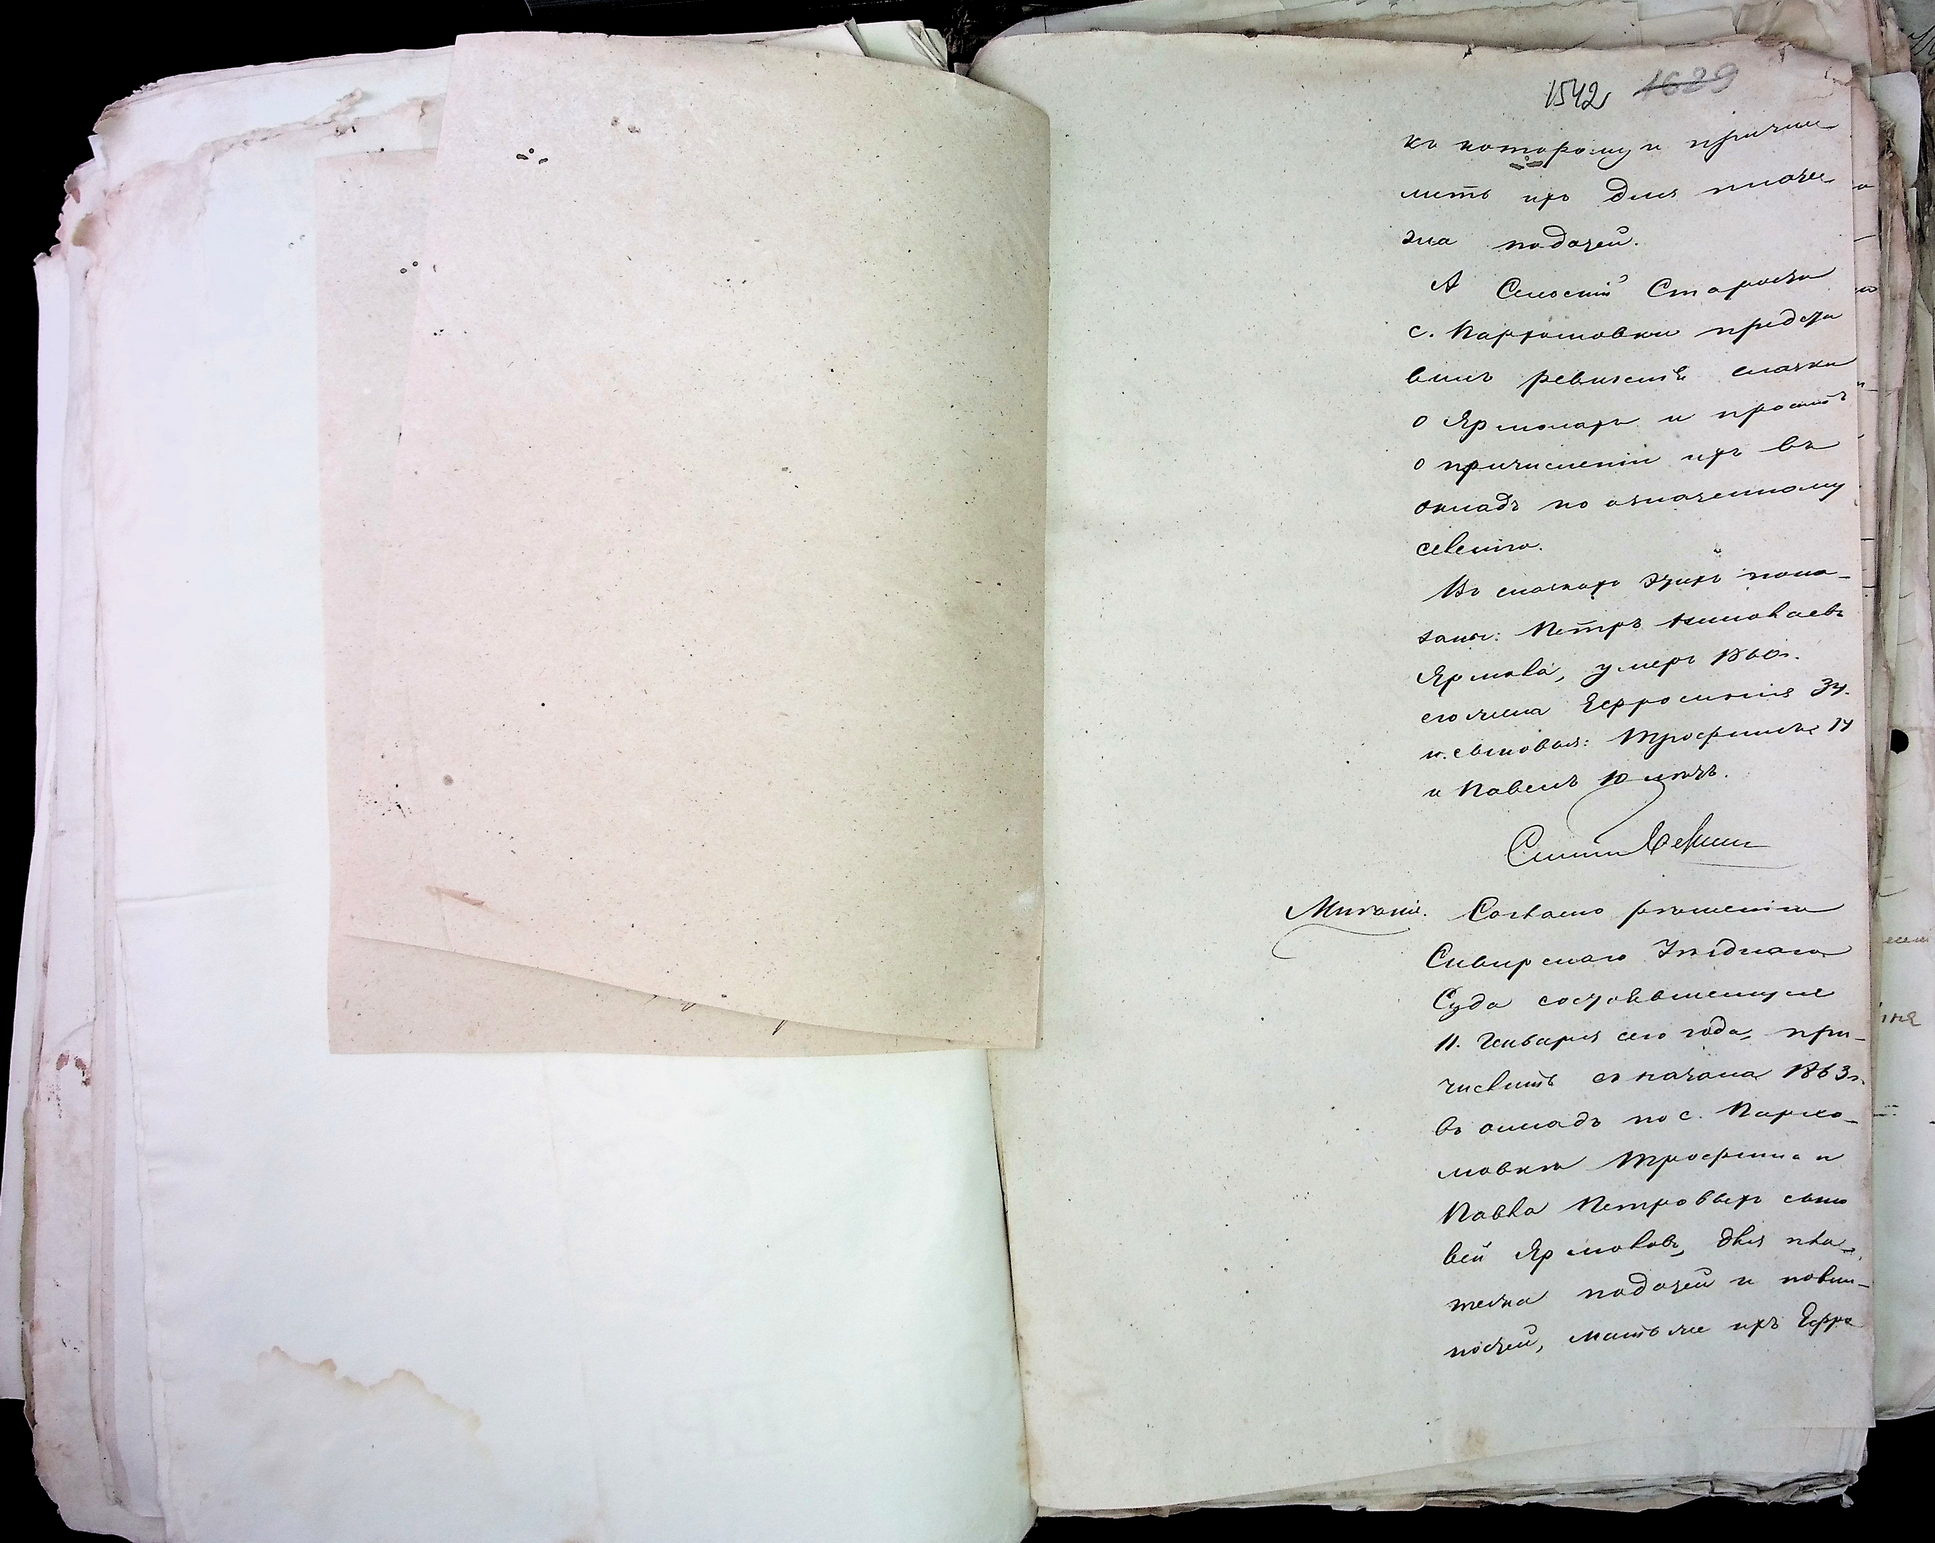 1542 1629
къ которому и причи
лить ихъ для плате
жа податей.
А Сельскій Староста
с. Пархомовки предста
вилъ ревизскія сказки
о Ярмолахъ и проситъ
о причисленіи ихъ въ
окладъ по означенному
селенію.
Въ сказкахъ этихъ пока-
заны: Петръ
Ярмола, умеръ 1860 г.
его жена Евфросинія 34.
и сыновья: Трофимъ 14
и Павелъ 10 лѣтъ.
Мнѣніе. Согласно рѣшенію
Сквирскаго Уѣзднаго
Суда состоявшемуся
11. Января сего года, при-
числить съ начала 1863 г.
въ окладъ по с. Пархо-
мовкѣ Трофима и
Павла Петровыхъ сыно
вей Ярмоловъ, для пла-
тежа податей и повин-
ностей, мать же ихъ Евфро